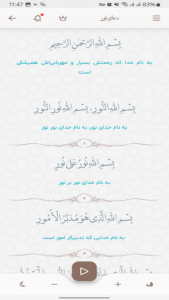 11:47
83%
دعای نور
بِسْمِ اللَّهِ الرَّحْمَنِ الرَّحِيمِ
به نام خدا که رحمتش بسیار و مهربانی‌اش همیشگی
است؛
بِسْمِ اللَّهِ النُّورِ، بِسْمِ اللَّهِ نُورِ النُّورِ
به نام خدای نور، به نام خدای نور نور
بِسْمِ اللَّهِ نُورٌ عَلَى نُورٍ
به نام خدای نور بر نور
بِسْمِ اللَّهِ الَّذِي هُوَ مُدَبِّرُ الْأُمُورِ
به نام خدایی که تدبیرگر امور است